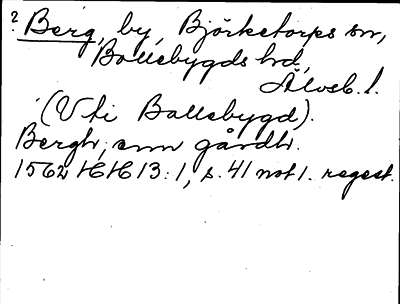 ? Berg, by, Björketorps sn,
Bollebygds hd,
Älvsb. l.
(V. ti Bollebygd).
Bergh, em gårdh.
1562 HH 13:1, s. 41 not 1. regest.